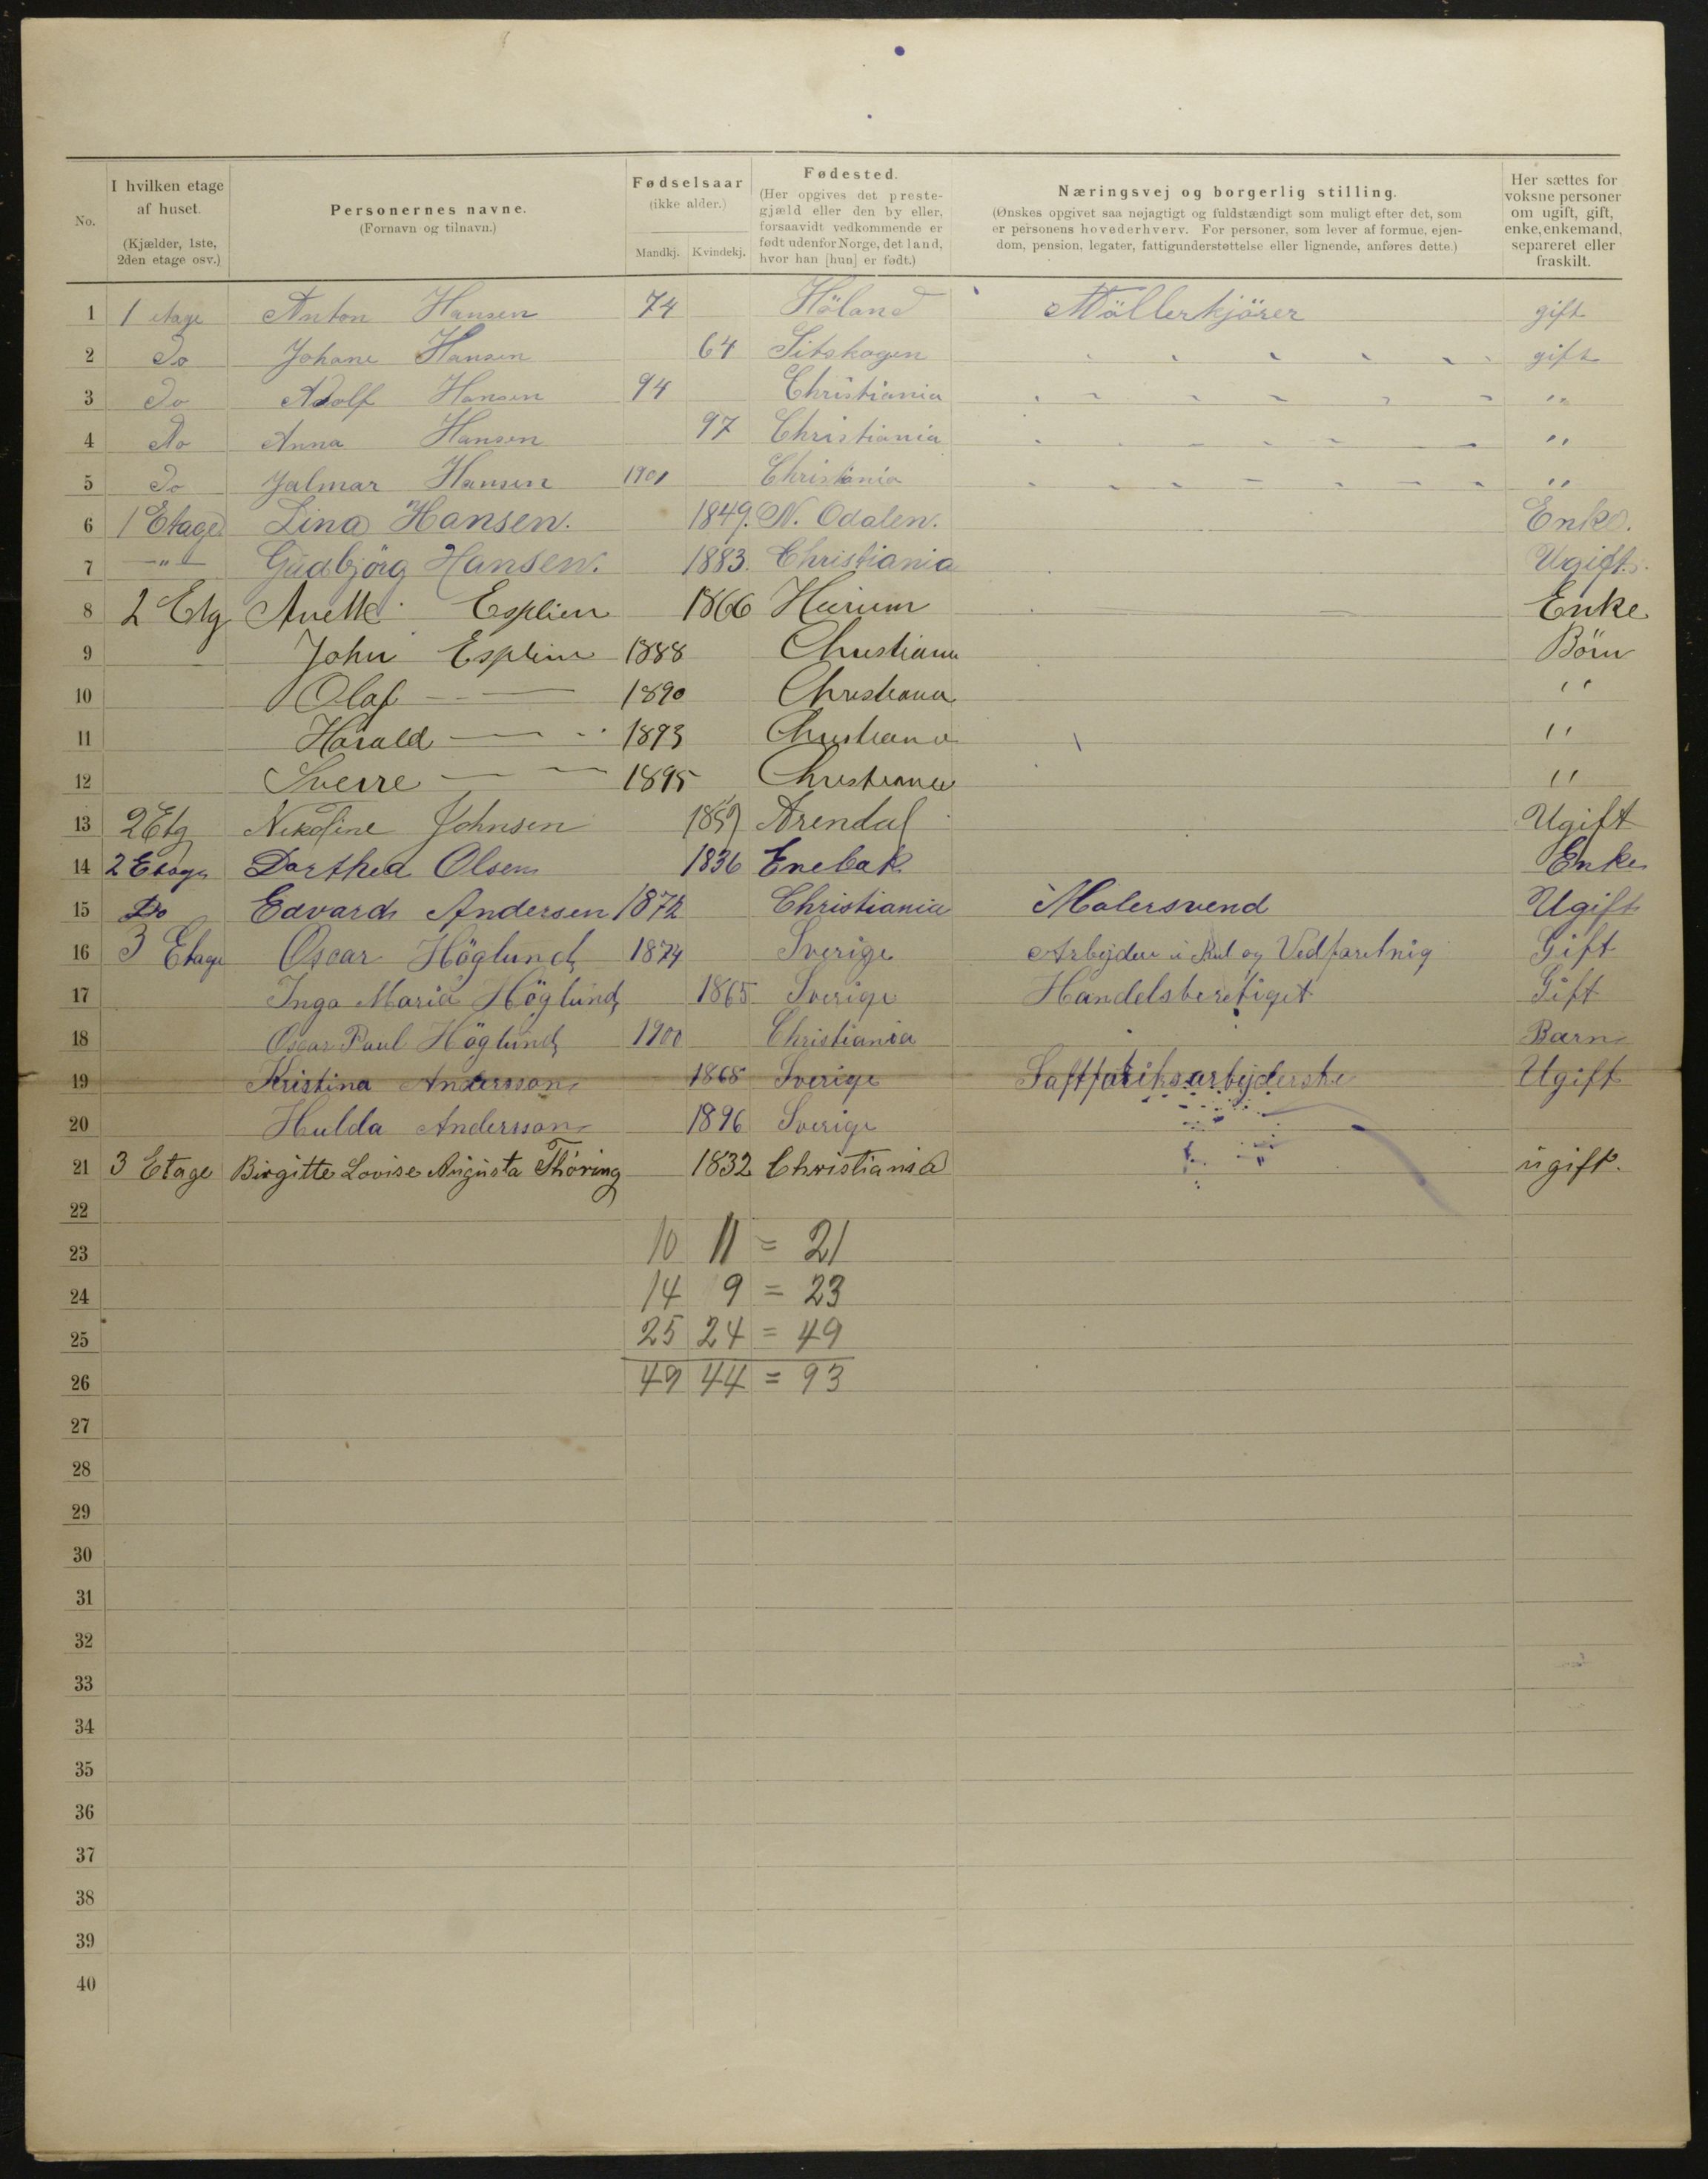 No. I hvilken etage af huset. (Kjælder, 1ste, 2den etage osv.) Personernes navne. (Fornavn og tilnavn.) Fødselsaar (ikke alder.) Mandkj. Kvindekj. Fødested. (Her opgives det prestegjæld eller den by eller, forsaavidt vedkommende er født udenfor Norge, det land, hvor han [hun] er født.) Næringsvej og borgerlig stilling. (Ønskes opgivet saa nøjagtigt og fuldstændigt som muligt efter det, som er personens hovederhverv. For personer, som lever af formue, ejendom, pension, legater, fattigunderstøttelse eller lignende, anføres dette.) Her sættes for voksne personer om ugift, gift, enke, enkemand, separeret eller fraskilt.
1 1 etage Anton Hansen 74 Höland Möllerkjörer gift
2 Do Johane Hansen 64 Sitskogen gift
3 Do Adolf Hansen 94 Christiania "
4 Do Anna Hansen 97 Christiania "
5 Do Jalmar Hansen 1901 Christiania "
6 1 Etage Lina Hansen. 1849. N. Odalen. Enke.
7 -"- Gudbjörg Hansen. 1883. Christiania Ugift.
8 2 Etg Anette Esplien 1866 Hurum Enke
9 John Esplin 1888 Christiania Börn
10 Olaf — — 1890 Christiania "
11 Harald — — 1893 Christiania "
12 Sverre — — 1895 Christiania "
13 2 Etg Nikoline Johnsen Arendal Ugift
14 2 Etage Dorthea Olsen 1836 Enebak Enke
15 Do Edvard Andersen 1872 Christiania Malersvend Ugift
16 3 Etage Oscar Höglund 1874 Sverige Arbejder i Kul og Vedforetnig Gift
17 Inga Maria Höglund 1865 Sverige Handelsberetiget Gift
18 Oscar Paul Höglund 1900 Christiania Barn
19 Kristina Andersson 1868 Sverige Saftfabriksarbejderske Ugift
20 Hulda Andersson 1896 Sverige
21 3 Etage Birgitte Lovise Augusta Thöring 1832 Christiania ugift.
22
23 10 11 = 21
24 14 9 = 23
25 25 24 = 49
26 49 44 = 93
27
28
29
30
31
32
33
34
35
36
37
38
39
40